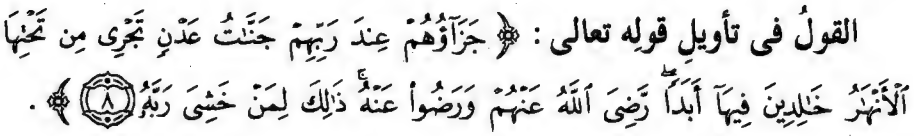 القولُ فى تأويلِ قولِه تعالى : ﴿ جَزَآؤُهُمْ عِندَ رَبِّهِمْ جَنَّٰتُ عَدْنٍ تَجْرِى مِن تَحْتِهَا
ٱلْأَنْهَٰرُ خَٰلِدِينَ فِيهَآ أَبَدًا رَّضِىَ ٱللَّهُ عَنْهُمْ وَرَضُوا۟ عَنْهُ ذَٰلِكَ لِمَنْ خَشِىَ رَبَّهُۥ ٨ ﴾ .